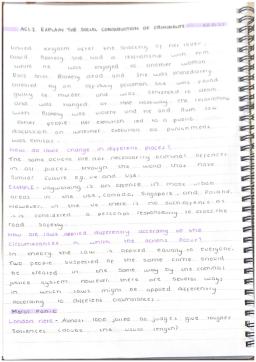 AC1.2 EXPLAIN THE SOCIAL CONSTRUCTION OF CRIMINALITY
United Kingdom after the shooting of her lover,
David Blakely. She had a relationship with him
while he was engaged to another woman.
and she was immediately
arrested by an off-duty policeman. She was found
guilty of murder and was sentenced to death
and was hanged.
with Blakely was violent and he
her execution led to a public
discussion on whether execution as punishment
was suitable.
How do laws change in different places?
The same actions are not necessarily criminal offences
in all places through the world that have
similar culture eg, UK and USA.
EXAMPLE: Jaywalking is an offence in most urban
areas in the USA, Canada, Singapore and Poland.
However, in the UK there is no such offence as
it is considered a personal responsibility to cross the
road safely.
How are laws applied differently according to the
circumstances in which the actions occur?
In theory the law is applied equally to everyone.
Two people suspected of the same crime should
be treated in the same way by the criminal
justice system. However there are several ways
in which laws might be applied differently
according to different circumstances.
Moral Panic
London riots - Almost 1000 jailed as judges give tougher
sentences